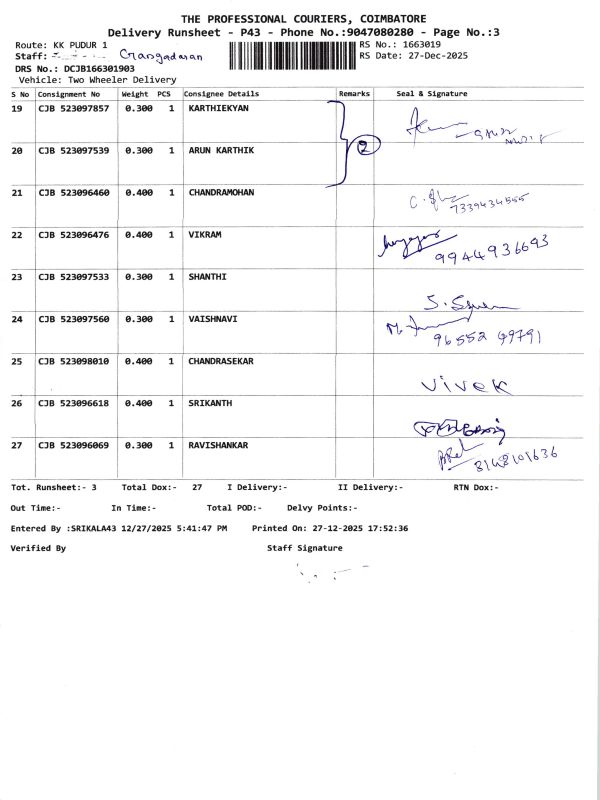 THE PROFESSIONAL COURIERS, COIMBATORE
Delivery Runsheet - P43 - Phone No.:9047080280 - Page No.:3
Route: KK PUDUR 1
RS No.: 1663019
Staff: Gangadaran
RS Date: 27-Dec-2025
DRS No.: DCJB166301903
Vehicle: Two Wheeler Delivery
S No Consignment No Weight PCS Consignee Details Remarks Seal & Signature
19 CJB 523097857 0.300 1 KARTHIEKYAN
20 CJB 523097539 0.300 1 ARUN KARTHIK 2
21 CJB 523096460 0.400 1 CHANDRAMOHAN
7339434555
22 CJB 523096476 0.400 1 VIKRAM
9944936693
23 CJB 523097533 0.300 1 SHANTHI
24 CJB 523097560 0.300 1 VAISHNAVI
96552 49791
25 CJB 523098010 0.400 1 CHANDRASEKAR
Vivek
26 CJB 523096618 0.400 1 SRIKANTH
27 CJB 523096069 0.300 1 RAVISHANKAR
8148101636
Tot. Runsheet:- 3 Total Dox:- 27 I Delivery:- II Delivery:- RTN Dox:-
Out Time:- In Time:- Total POD:- Delvy Points:-
Entered By :SRIKALA43 12/27/2025 5:41:47 PM Printed On: 27-12-2025 17:52:36
Verified By Staff Signature